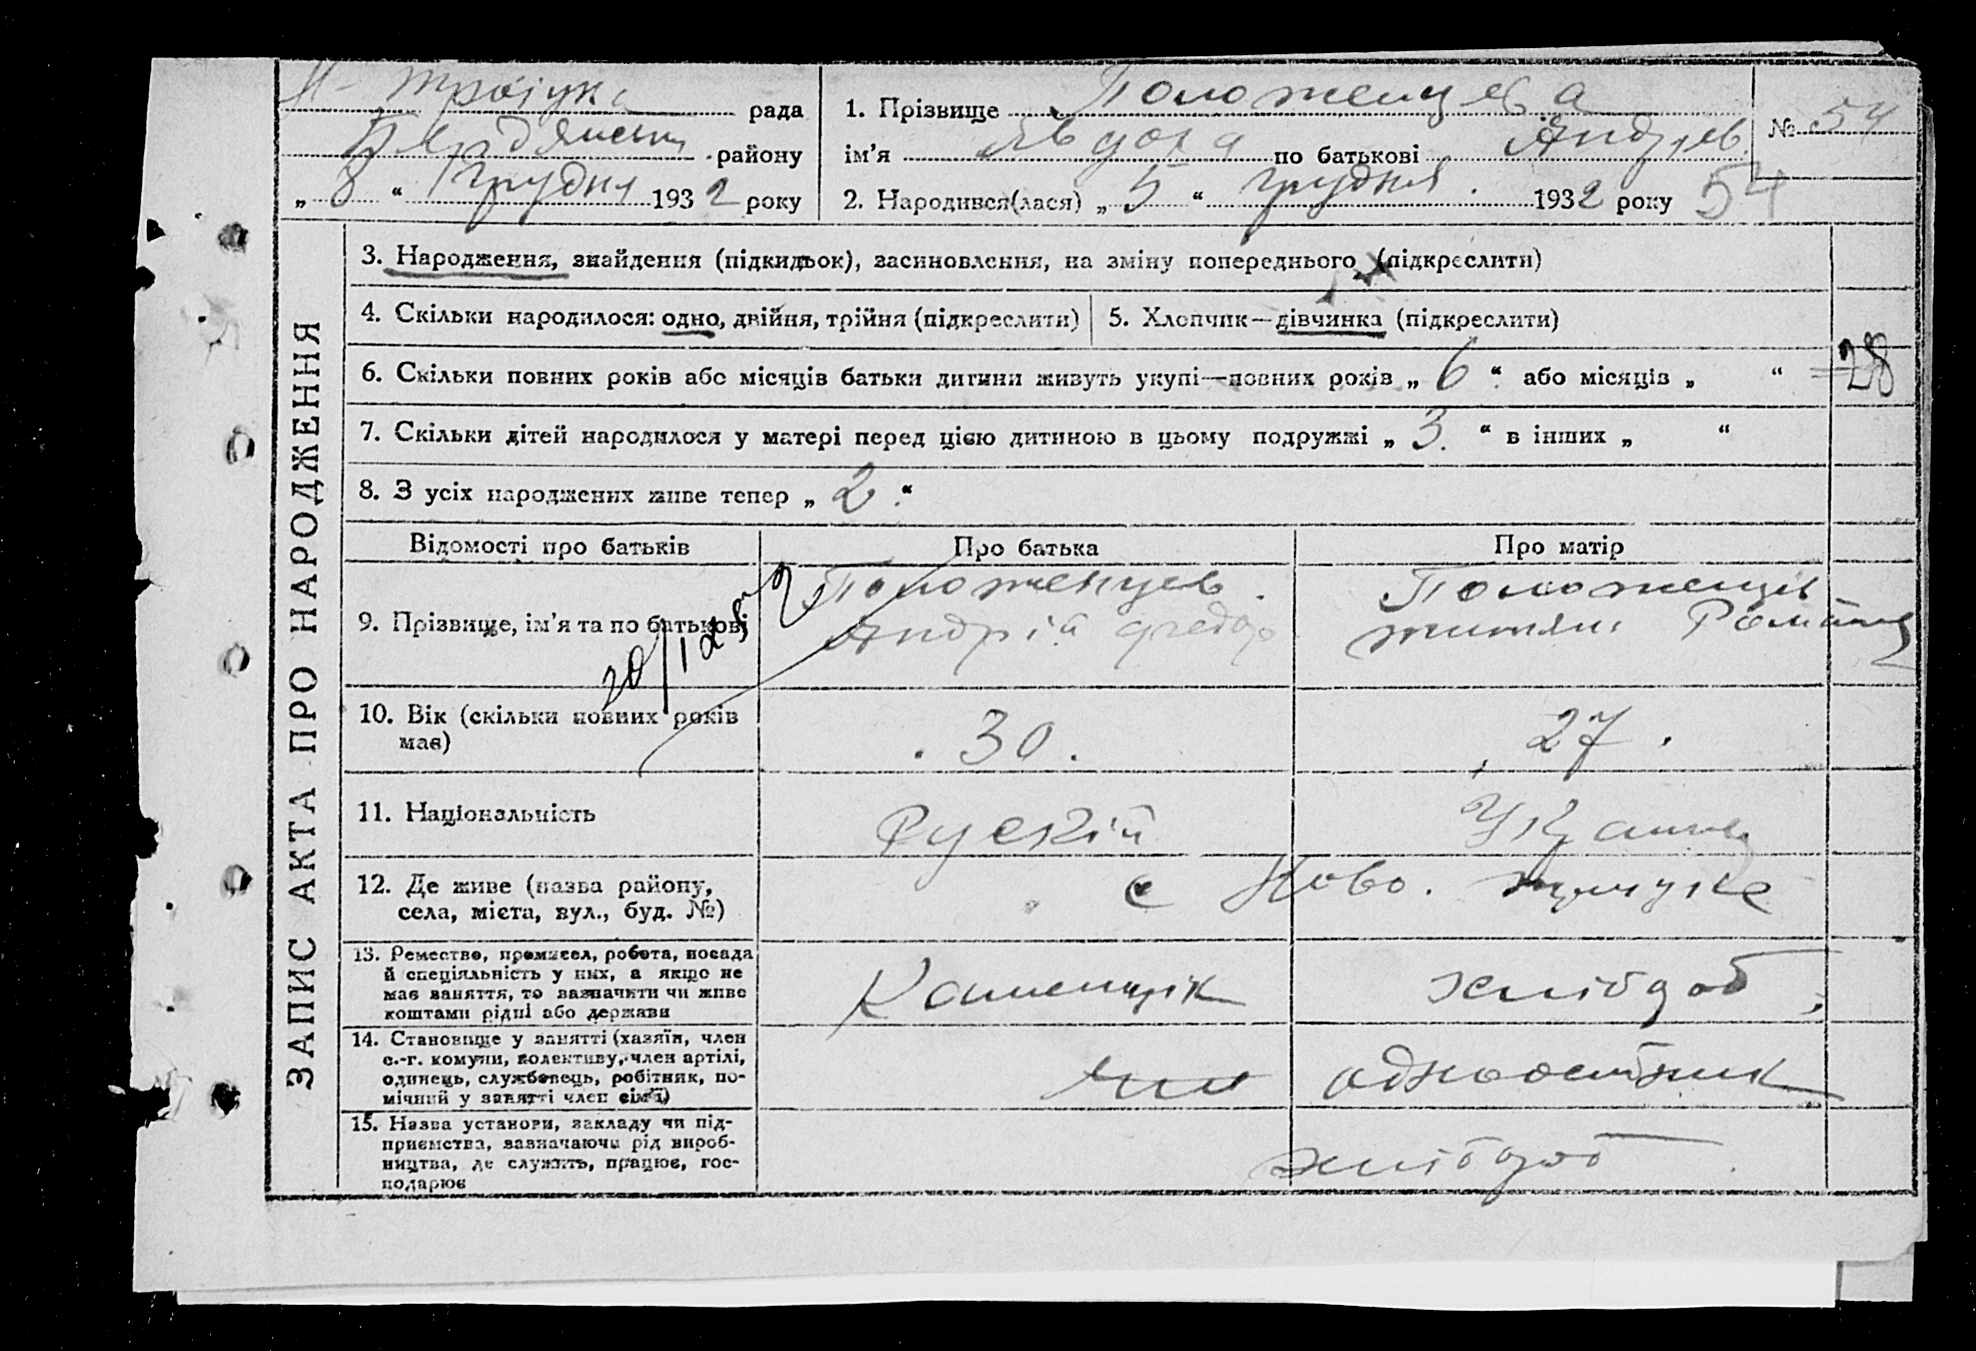 Н-Троїцка рада
Бердянськ району
„ 8 “ Грудня 1932 року
1. Прізвище Положенцева
ім’я Явдоха по батькові Андрієв.
№ 54
2. Народився(лася) „ 5 “ Грудня. 1932 року 54
ЗАПИС АКТА ПРО НАРОДЖЕННЯ
3. Народження, знайдення (підкидьок), засиновлення, на зміну попереднього (підкреслити)
4. Скільки народилося: одно, двійня, трійня (підкреслити)
5. Хлопчик—дівчинка (підкреслити)
6. Скільки повних років або місяців батьки дитини живуть укупі—повних років „ 6 “ або місяців „ “ 28
7. Скільки дітей народилося у матері перед цією дитиною в цьому подружжі „ 3. “ в інших „ “
8. З усіх народжених живе тепер „ 2 “
Відомості про батьків
Про батька
Про матір
9. Прізвище, ім’я та по батькові
Положенцев.
Андрій Федор
Положенців
Роман
10. Вік (скільки повних років
має)
. 30 .
27 .
11. Національність
Рускій
12. Де живе (назва району,
села, міста, вул., буд. №)
с Ново.
13. Ремество, промисел, робота, посада
й спеціяльність у них, а якщо не
має заняття, то зазначити чи живе
коштами рідні або держави
Каменщік
хлібороб
14. Становище у занятті (хазяїн, член
с.-г. комуни, колективу, член артілі,
одинець, службовець, робітник, по-
мічний у занятті член сім’ї)
член
одноосібник
15. Назва установи, закладу чи під-
приємства, зазначаючи рід вироб-
ництва, де служить, працює, гос-
подарює
хлібороб